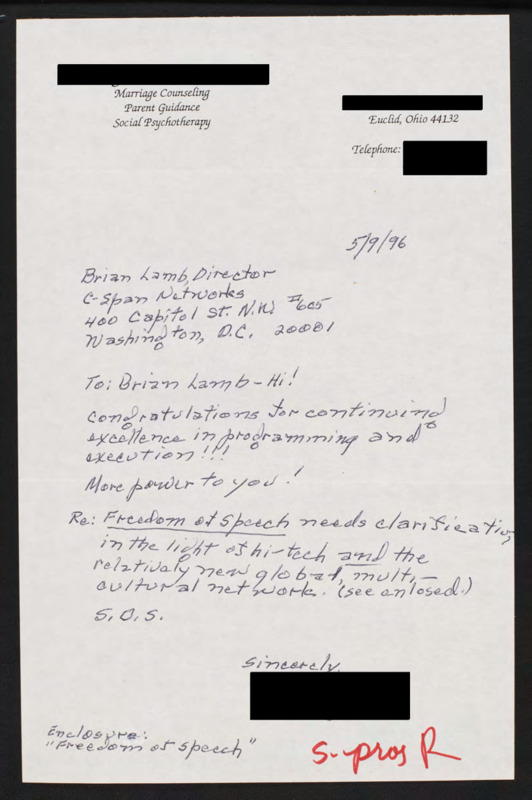 Marriage Counseling
Parent Guidance
Social Psychotherapy
Euclid, Ohio 44132
Telephone:
5/9/96
Brian Lamb, Director
C-Span Networks
400 Capitol St. N.W. #605
Washington, D.C. 20001
To: Brian Lamb - Hi!
Congratulations for continuing
excellence in programming and
execution!!!
More power to you!
Re: Freedom of Speech needs clarification
in the light of hi-tech and the
relatively new global, multi-
cultural network. (see enlosed.)
S.O.S.
Sincerely,
Enclosure:
"Freedom of Speech"
S-pros R